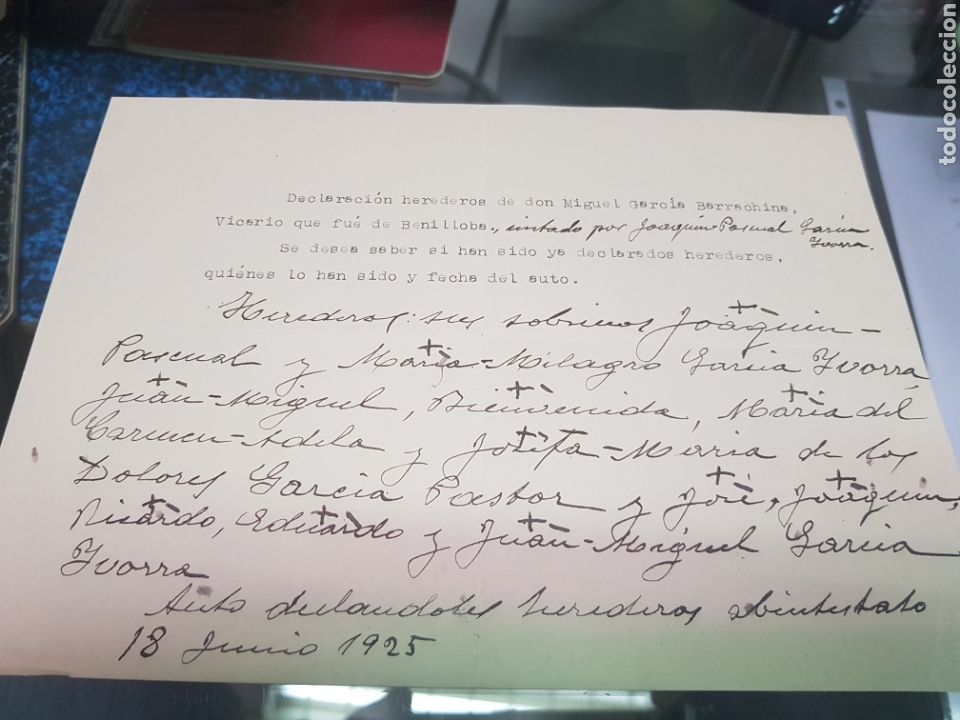 todocoleccion
Declaración herederos de don Miguel García Barrachina,
Vicario que fué de Benilloba, instado por Joaquín Pascual García
Ivorra.
Se desea saber si han sido ya declarados herederos,
quiénes lo han sido y fecha del auto.
Herederos: sus sobrinos Joaquin-
Pascual y Maria-Milagro Garcia Ivorra,
Juan-Miguel, Bienvenida, Maria del
Carmen-Adela y Josefa-Maria de los
Dolores Garcia Pastor y José, Joaquin,
Ricardo, Eduardo y Juan-Miguel Garcia
Ivorra
Auto declarandoles herederos abintestato
18 Junio 1925